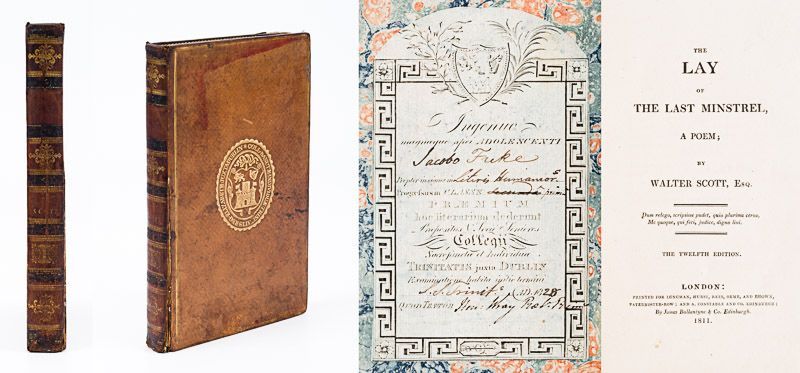 SCOTT
Ingenuo
magnaque spei ADOLESCENTI
Jacobo
Propter insignes in Literis Humanior.
Progressus in CLASSE
PRÆMIUM
hoc literarium dederunt
Præpositus & Socii Seniores
Collegii
Sacrosanctæ et Individuæ
TRINITATIS juxta DUBLIN
Examinatione habita
1828
QUOD TESTOR Hen. Wray
THE
LAY
OF
THE LAST MINSTREL,
A POEM;
BY
WALTER SCOTT, Esq.
Dum relego, scripsisse pudet, quia plurima cerno,
Me quoque, qui feci, judice, digna lini.
THE TWELFTH EDITION.
LONDON:
PRINTED FOR LONGMAN, HURST, REES, ORME, AND BROWN,
PATERNOSTER-ROW; AND A. CONSTABLE AND CO. EDINBURGH;
By James Ballantyne & Co. Edinburgh.
1811.